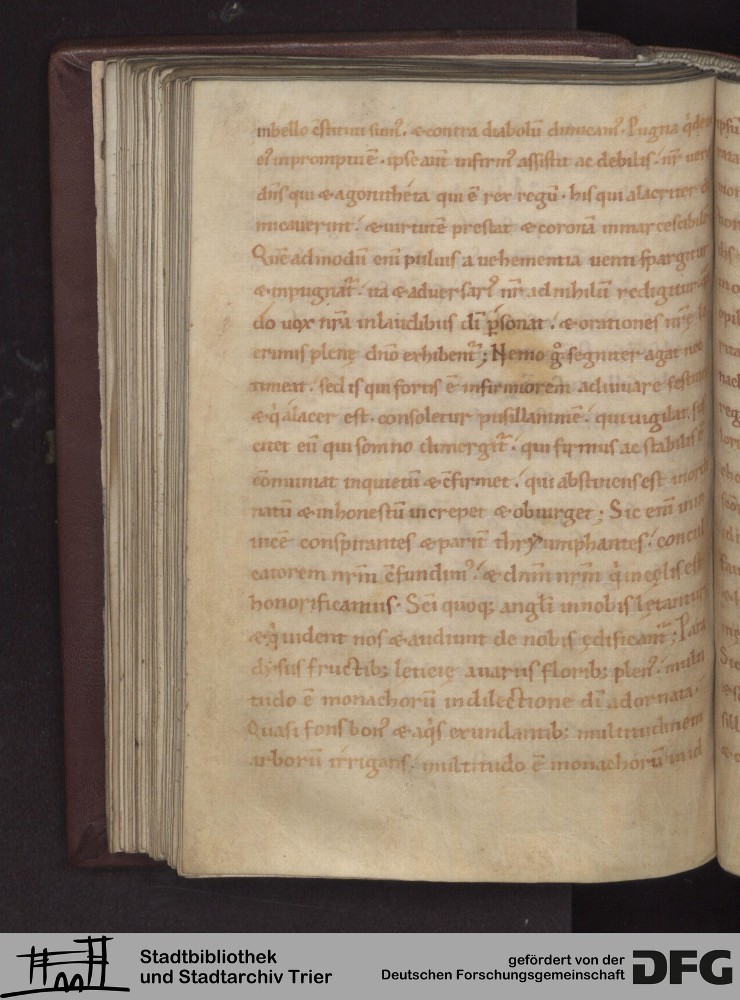 inbello c̄stituti sum᷒. & contra diabolū dimicam᷒. Pugna q̇dē
e᷒ inpromptu ē. ipse aūt infirm᷒ assistit ac debilis. nr̄
dn̄s qui & agonitheta qui ē rex regū. his qui alacriter
micauerint. & uirtutē prestat & coronā inmarcescibilē
Quē admodū enī puluis a uehementia uenti spargitur
& inpugnat᷒. ita & aduersari᷒ nr̄ ad nihilū redigitur
do uox nr̄a inlaudibus dī ꝑsonat. & orationes nr̄ę
crimis plenę dn̄o exhibent᷒; Nemo g̊ segniter agat nec
timeat. sed is qui fortis ē infirmiorem adiuuare festin
& q̇ alacer est. consoletur pusillanimē. qui uigilat.
citet eū qui somno dimergit᷒. qui firmus ac stabilis ē
cōmuniat inquietū & c̄firmet. qui abstinens est
natū & inhonestū increpet & obiurget; Sic enī in
uicē conspirantes & parit᷒ thryumphantes. concul
catorem nr̄m c̄fundim᷒. & dn̄m nr̄m q̇ in cęlis est
honorificamus. Sc̄i quoq; angl̄i in nobis lętantur
& q̇ uident nos & audiunt de nobis ędificant᷒; Para
dysus fructib; leticię auarus florib; plen᷒. multi
tudo ē monachorū indilectione dī adornata.
Quasi fons bon᷒ & aq̇s exundantib; multitudinem
arborū irrigans. multitudo ē monachorū in id
Stadtbibliothek
und Stadtarchiv Trier
gefördert von der
Deutschen Forschungsgemeinschaft
DFG